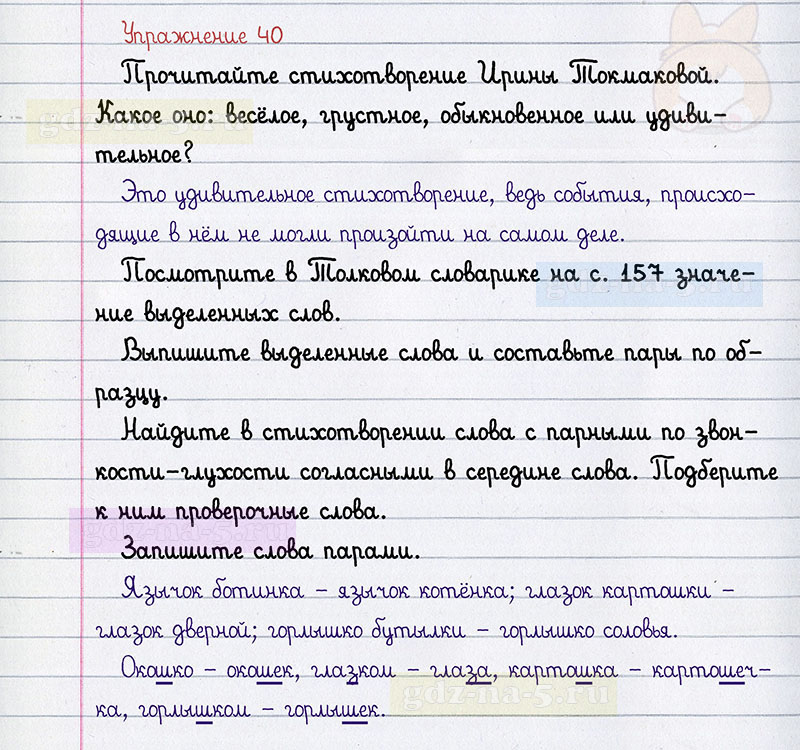 Упражнение 40
Прочитайте стихотворение Ирины Токмаковой.
Какое оно: весёлое, грустное, обыкновенное или удиви-
тельное?
Это удивительное стихотворение, ведь события, происхо-
дящие в нём не могли произойти на самом деле.
Посмотрите в Толковом словарике на с. 157 значе-
ние выделенных слов.
Выпишите выделенные слова и составьте пары по об-
разцу.
Найдите в стихотворении слова с парными по звон-
кости-глухости согласными в середине слова. Подберите
к ним проверочные слова.
Запишите слова парами.
Язычок ботинка – язычок котёнка; глазок картошки –
глазок дверной; горлышко бутылки – горлышко соловья.
Окошко – окошек, глазком – глаза, картошка – картошеч-
ка, горлышком – горлышек.
gdz-na-5.ru
gdz-na-5.ru
gdz-na-5.ru
gdz-na-5.ru